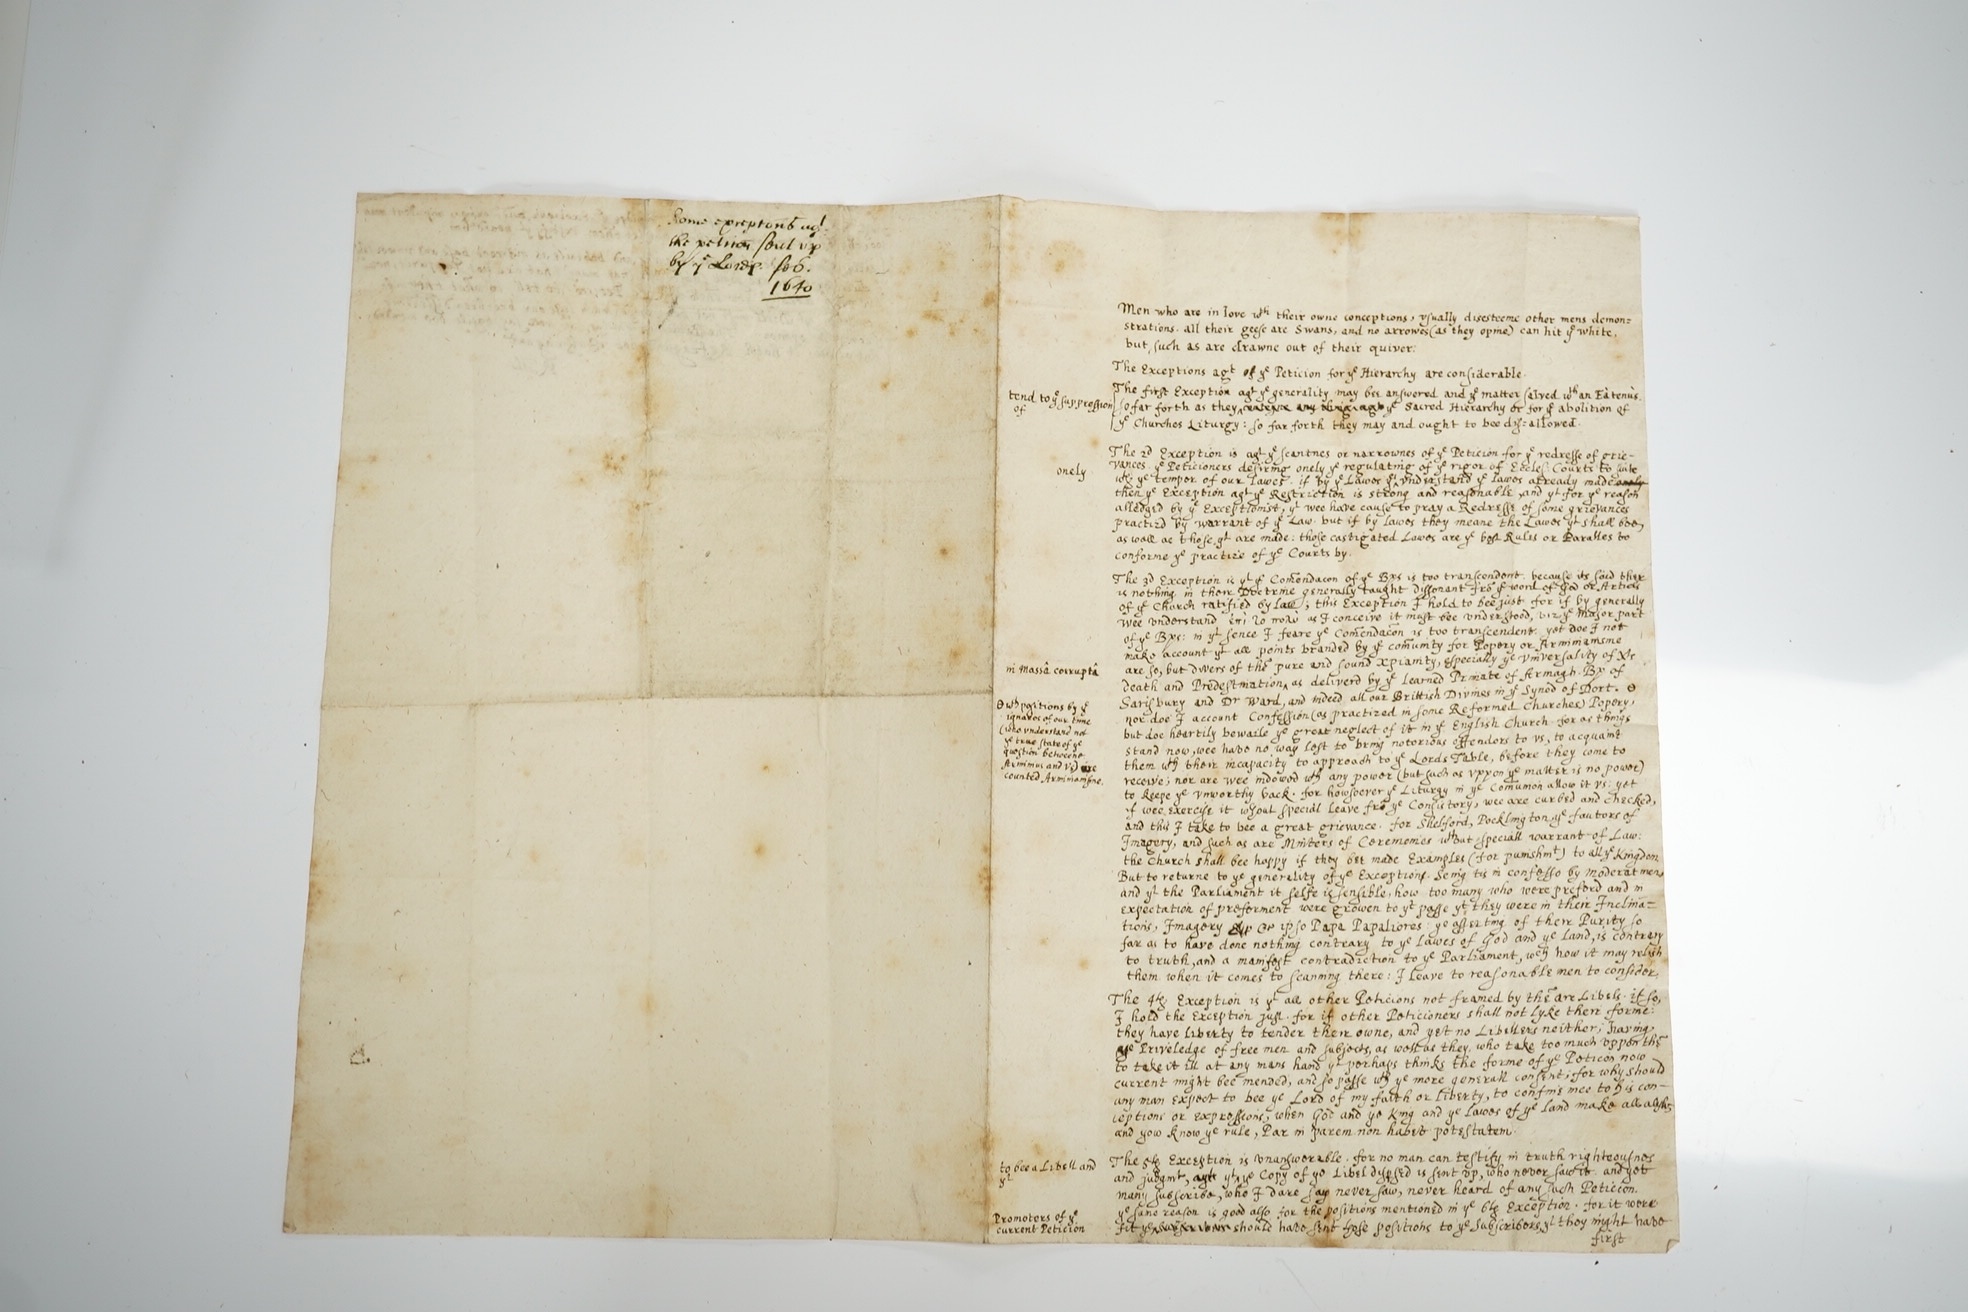 Some exceptions agt.
the petition sent up
by ye Lordp. feb.
1640
Men who are in love wth their owne conceptions, usually disesteeme other mens demon=
strations. all their geese are Swans, and no arrowes (as they opine) can hit ye white,
but such as are drawne out of their quiver.
The Exceptions agt ye Peticion for ye Hierarchy are considerable.
The first Exception agt ye generality may bee answered and ye matter salved wth an Eatenùs.
tend to ye suppression
of
so far forth as they ye Sacred Hierarchy or for ye abolition of
ye Churches Liturgy: so far forth they may and ought to bee dis=allowed.
The 2d Exception is agt ye scantnes or narrownes of ye Peticion for ye redresse of grie-
vances. ye Peticioners desiring onely ye regulating of ye rigor of Eccles: Courts to suite
onely
wth ye temper of our Lawes. if by ye Lawes yy understand ye lawes already made onely
then ye Exception agt ye Restriction is strong and reasonable, and yt for ye reason
alledged by ye Exceptionist, yt wee have cause to pray a Redresse of some grievances
practized by warrant of ye Law. but if by lawes they meane the Lawes yt shall bee,
as well as those yt are made: those castigated Lawes are ye best Rules or Paralles to
conforme ye practize of ye Courts by.
The 3d Exception is yt ye Comendacon of ye Bps is too transcendent. because its said there
is nothing in their Doctrine generally taught dissonant fro ye word of God or Articles
of ye Church ratified by law; this Exception I hold to bee just. for if by generally
wee understand as I conceive it must bee understood, viz ye Major part
of ye Bps: in yt sence I feare ye Comendacon is too transcendent. yet doe I not
make account yt all points branded by ye comunity for Popery or Arminianisme
in Massâ corruptâ
are so, but divers of the pure and sound Xpianity, especially ye universality of Xts
death and Predestination, as deliverd by ye learned Primate of Armagh. Bp of
Sarisbury and Dr Ward, and indeed all our Brittish Divines in ye Synod of Dort.
wth positions by ye
ignaros of our time
(who understand not
ye true state of ye
question betweene
Arminius and us) are
counted Arminianisme.
nor doe I account Confession (as practized in some Reformed Churches) Popery,
but doe heartily bewaile ye great neglect of it in ye English Church. for as things
stand now, wee have no way left to bring notorious offendors to us, to acquaint
them wth their incapacity to approach to ye Lords Table, before they come to
receive; nor are wee indowed wth any power (but such as uppon ye matter is no power)
to keepe ye unworthy back. for howsoever ye Liturgy in ye Comunion allow it us: yet
if wee exercise it wthout special leave fro ye Consistory, wee are curbed and checked,
and this I take to bee a great grievance. for Shelford, Pocklington, ye fautors of
Imagery, and such as are Ministers of Ceremonies wthout speciall warrant of Law:
the Church shall bee happy if they bee made Examples (for punishmt) to all ye Kingdom
But to returne to ye generality of ye Exceptions. Seing tis in confesso by moderat men,
and yt the Parliament it selfe is sensible, how too many who were preferd and in
expectation of preferment were growen to yt passe yt they were in their Inclina=
tions, Imagery ipso Papa Papaliores: ye asserting of their Purity so
far as to have done nothing contrary to ye Lawes of God and ye Land, is contrary
to truth, and a manifest contradiction to ye Parliament, wch how it may relish
them when it comes to scanning there: I leave to reasonable men to consider.
The 4th Exception is yt all other Peticions not framed by the are Libels. if so,
I hold the Exception just. for if other Peticioners shall not lyke their forme:
they have liberty to tender their owne, and yet no Libellers neither; having
ye Priveledge of free men and subjects, as well as they, who take too much uppon the
to take it ill at any mans hand yt perhaps thinks the forme of ye Peticon now
current might bee mended, and so passe wth ye more generall consent; for why should
any man expect to bee ye Lord of my faith or liberty, to confine mee to his con-
ceptions or expressions, when God and ye King and ye Lawes of ye Land make
and yow know ye rule, Par in parem non habet potestatem.
The 5th Exception is unanswerable. for no man can testify in truth righteousnes
to bee a Libell and
yt
and judgmt, yt ye Copy of ye Libel dispersed is sent up, who never saw it. and yet
many subscribe, who I dare say never saw, never heard of any such Peticion.
ye same reason is good also for the positions mentioned in ye 6th Exception. for it were
Promoters of ye
current Peticion
fit ye should have sent those positions to ye subscribers, yt they might have
first